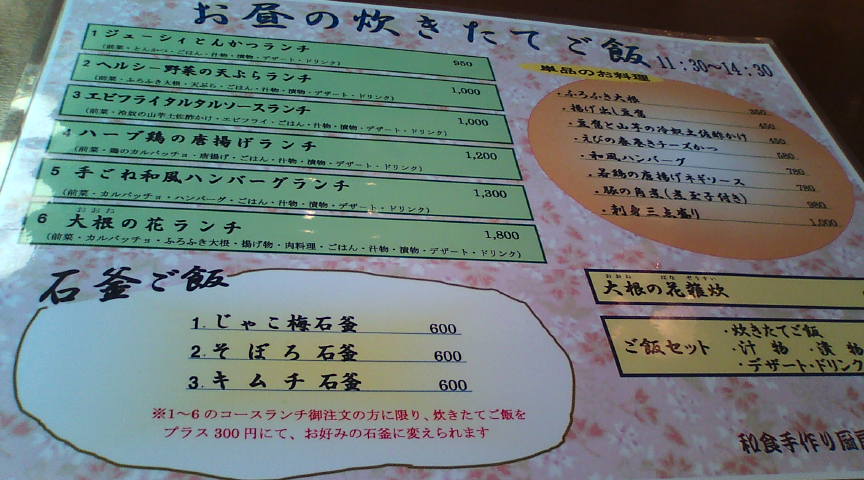 お昼の炊きたてご飯 11:30～14:30
1 ジューシィとんかつランチ 950
(前菜・とんかつ・ごはん・汁物・漬物・デザート・ドリンク)
2 ヘルシー野菜の天ぷらランチ 1,000
(前菜・ふろふき大根・天ぷら・ごはん・汁物・漬物・デザート・ドリンク)
3 エビフライタルタルソースランチ 1,000
(前菜・冷奴の山芋土佐酢かけ・エビフライ・ごはん・汁物・漬物・デザート・ドリンク)
4 ハーブ鶏の唐揚げランチ 1,200
(前菜・鶏のカルパッチョ・唐揚げ・ごはん・汁物・漬物・デザート・ドリンク)
5 手ごね和風ハンバーグランチ 1,300
(前菜・カルパッチョ・ハンバーグ・ごはん・汁物・漬物・デザート・ドリンク)
おおね
6 大根の花ランチ 1,800
(前菜・カルパッチョ・ふろふき大根・揚げ物・肉料理・ごはん・汁物・漬物・デザート・ドリンク)
単品のお料理
・ふろふき大根 350
・揚げ出し豆腐 450
・豆腐と山芋の冷奴土佐酢かけ 450
・えびの春巻きチーズかつ 580
・和風ハンバーグ 780
・若鶏の唐揚げネギソース 780
・豚の角煮(煮玉子付き) 980
・刺身三点盛り 1,000
石釜ご飯
1. じゃこ梅石釜 600
2. そぼろ石釜 600
3. キムチ石釜 600
※1～6のコースランチ御注文の方に限り、炊きたてご飯を
プラス300円にて、お好みの石釜に変えられます
おおね はな ぞうすい
大根の花雑炊
ご飯セット
・炊きたてご飯
・汁物 ・漬物
・デザート・ドリンク
和食手作り厨房